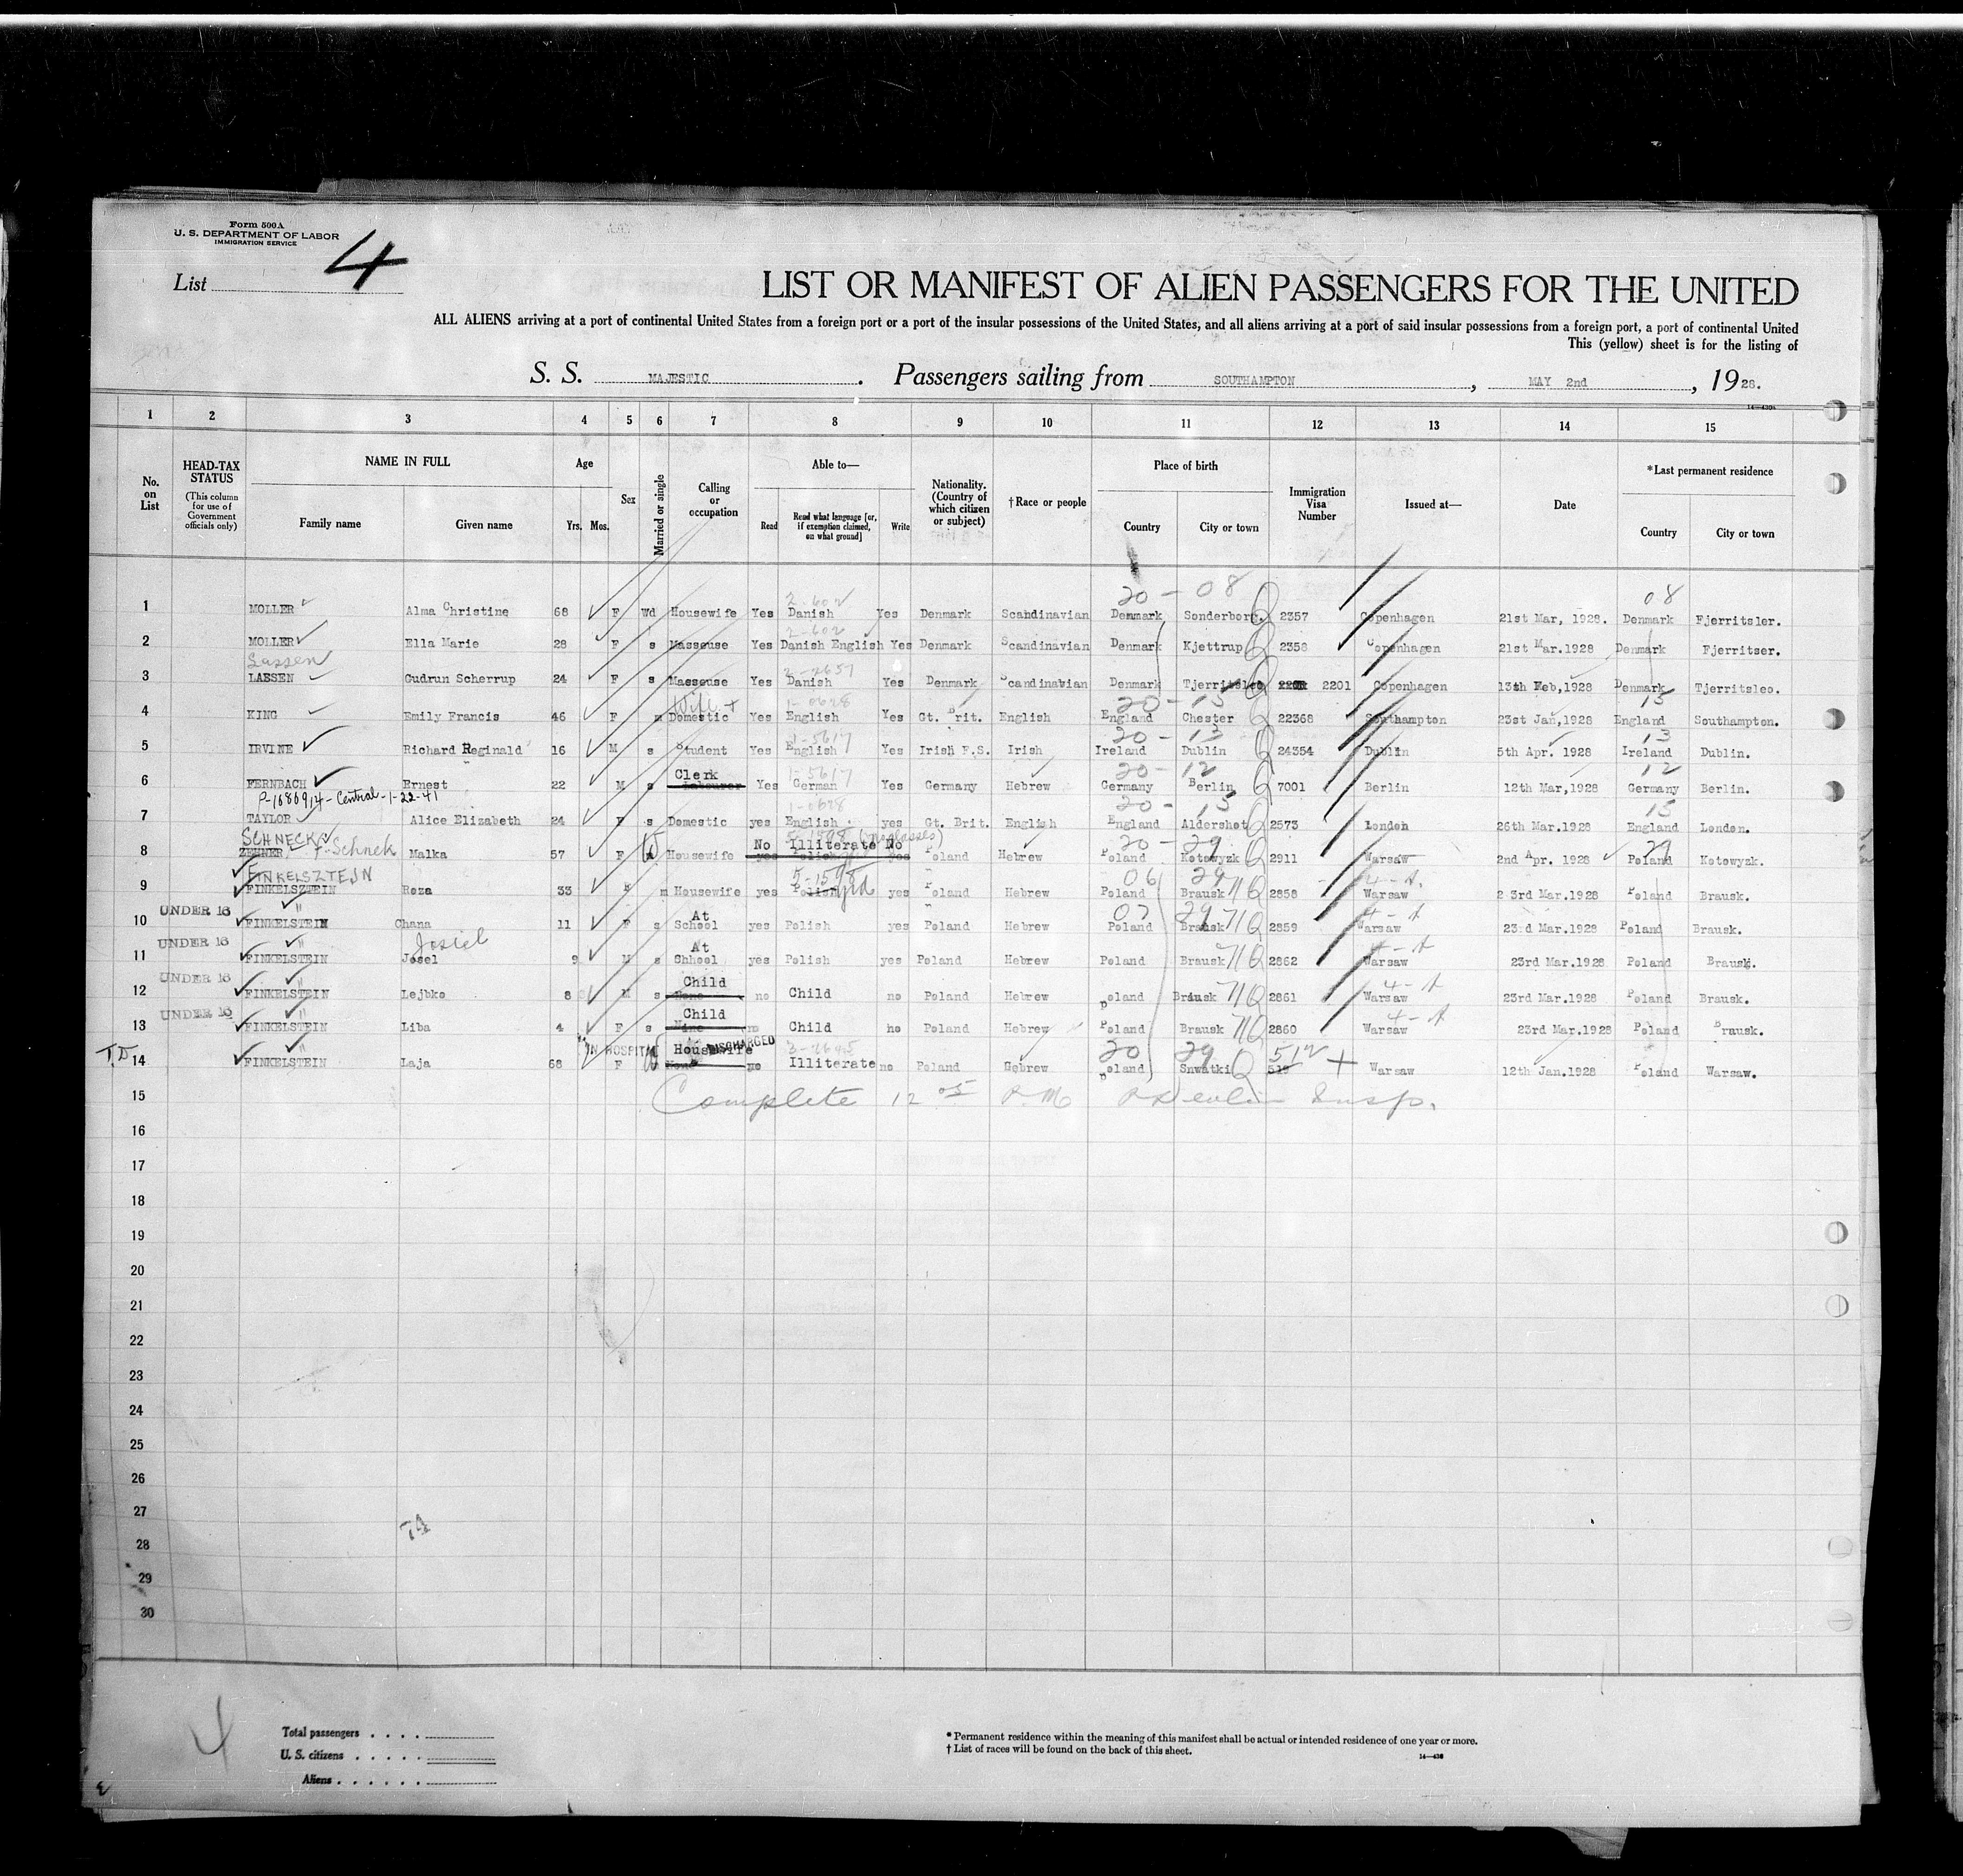 Form 500A
U. S. DEPARTMENT OF LABOR
IMMIGRATION SERVICE
List 4
LIST OR MANIFEST OF ALIEN PASSENGERS FOR THE UNITED
ALL ALIENS arriving at a port of continental United States from a foreign port or a port of the insular possessions of the United States, and all aliens arriving at a port of said insular possessions from a foreign port, a port of continental United
This (yellow) sheet is for the listing of
S. S. MAJESTIC. Passengers sailing from SOUTHAMPTON, MAY 2nd, 1928.
1 2 3 4 5 6 7 8 9 10 11 12 13 14 15
No. on List
HEAD-TAX STATUS (This column for use of Government officials only)
NAME IN FULL
Family name Given name
Age
Yrs. Mos.
Sex
Married or single
Calling or occupation
Able to—
Read
Read what language [or, if exemption claimed, on what ground]
Write
Nationality. (Country of which citizen or subject)
†Race or people
Place of birth
Country City or town
Immigration Visa Number
Issued at—
Date
*Last permanent residence
Country City or town
20 - 08 08
1 MOLLER Alma Christine 68 F Wd Housewife Yes Danish Yes Denmark Scandinavian Denmark Sonderborg. 2357 Copenhagen 21st Mar, 1928. Denmark Fjerritsler.
2 MOLLER Ella Marie 28 F s Masseuse Yes Danish English Yes Denmark Scandinavian Denmark Kjettrup 2358 Copenhagen 21st Mar.1928 Denmark Fjerritser.
Lassen 2-2657
3 LASSEN Gudrun Scherrup 24 F s Masseuse Yes Danish Yes Denmark Scandinavian Denmark Tjerritsleo 2201 Copenhagen 13th Feb,1928 Denmark Tjerritsleo.
Wife + 1-0628 20 - 15 15
4 KING Emily Francis 46 F m Domestic Yes English Yes Gt. Brit. English England Chester 22368 Southampton 23st Jan,1928 England Southampton.
1-5617 20 - 13 13
5 IRVINE Richard Reginald 16 M s Student Yes English Yes Irish F.S. Irish Ireland Dublin 24354 Dublin 5th Apr. 1928 Ireland Dublin.
Clerk 1-5617 20 - 12 12
6 FERNBACH Ernest 22 M s Labourer Yes German Yes Germany Hebrew Germany Berlin 7001 Berlin 12th Mar,1928 Germany Berlin.
P-1686914 - Central - 1-22-41 1-0628 20 - 15 15
7 TAYLOR Alice Elizabeth 24 F s Domestic yes English yes Gt. Brit. English England Aldershot 2573 London 26th Mar.1928 England London.
SCHNECK F-Schnek No Illiterate No (no glasses) 20 - 29 29
8 ZEHNER Malka 57 F Housewife yes Polish yes Poland Hebrew Poland Kotowyzk 2911 Warsaw 2nd Apr. 1928 Poland Kotowyzk.
FINKELSZTEJN 06 29 4 - A
9 FINKELSZTEIN Roza 33 F m Housewife yes Polish yes Poland Hebrew Poland Brausk 71 2858 Warsaw 23rd Mar.1928 Poland Brausk.
UNDER 16 " At 07 29 4 - A
10 FINKELSTEIN Chana 11 F s School yes Polish yes Poland Hebrew Poland Brausk 71 2859 Warsaw 23rd Mar.1928 Poland Brausk.
UNDER 16 " Josiel At 4 - A
11 FINKELSTEIN Josel 9 M s Shhool yes Polish yes Poland Hebrew Poland Brausk 71 2862 Warsaw 23rd Mar.1928 Poland Brausk.
UNDER 16 " Child 4 - A
12 FINKELSTEIN Lejbko 8 M s None no Child no Poland Hebrew Poland Brausk 71 2861 Warsaw 23rd Mar.1928 Poland Brausk.
UNDER 16 " Child 4 - A
13 FINKELSTEIN Liba 4 F s no Child no Poland Hebrew Poland Brausk 71 2860 Warsaw 23rd Mar.1928 Poland Brausk.
T.D " IN HOSPITAL Housewife DISCHARGED 20 29 512 +
14 FINKELSTEIN Laja 68 F None no Illiterate no Poland Gebrew Poland Snwatki Warsaw 12th Jan.1928 Poland Warsaw.
15 Complete 12 05 P.M Insp.
16
17
18
19
20
21
22
23
24
25
26
27
28
29
30
Total passengers
U. S. citizens
Aliens
* Permanent residence within the meaning of this manifest shall be actual or intended residence of one year or more.
† List of races will be found on the back of this sheet.